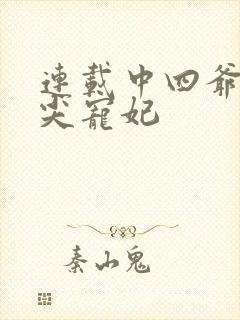 連載中四爺
尖寵妃
秦山鬼